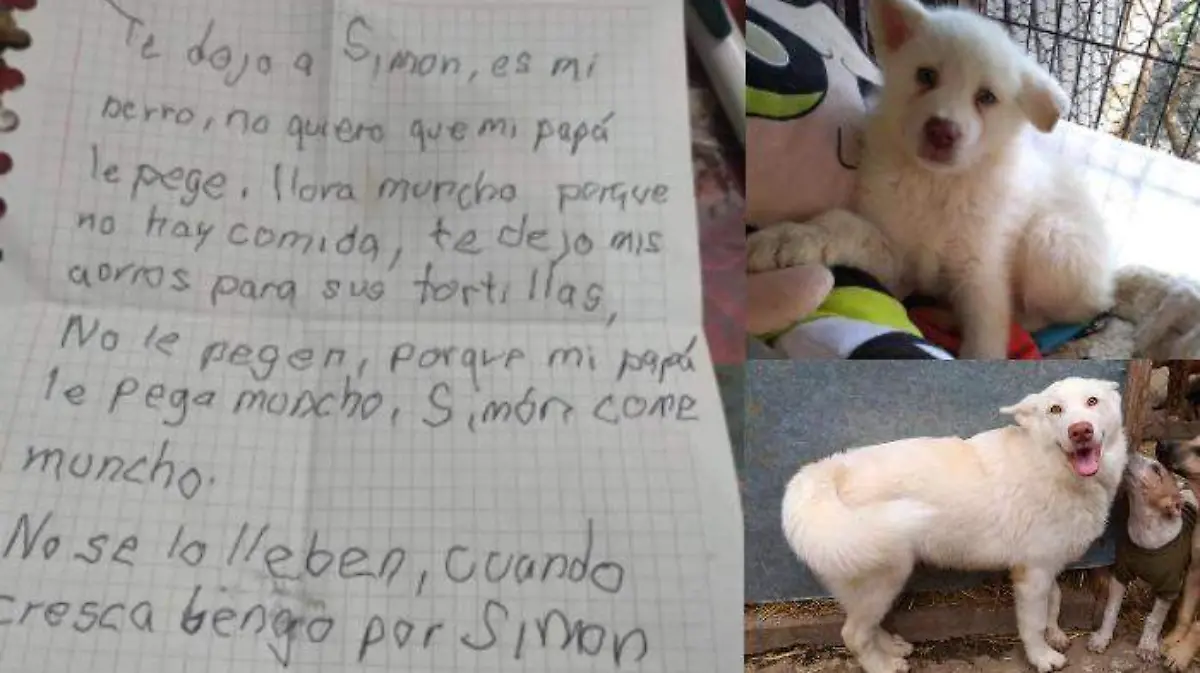 Te dojo a Simon, es mi
perro, no quiero que mi papá
le pege. llora muncho porque
no hay comida, te dejo mis
aorros para sus tortillas,
No le pegen, porque mi papá
le pega muncho, Simón come
muncho.
No se lo lleben, cuando
cresca bengo por Simon